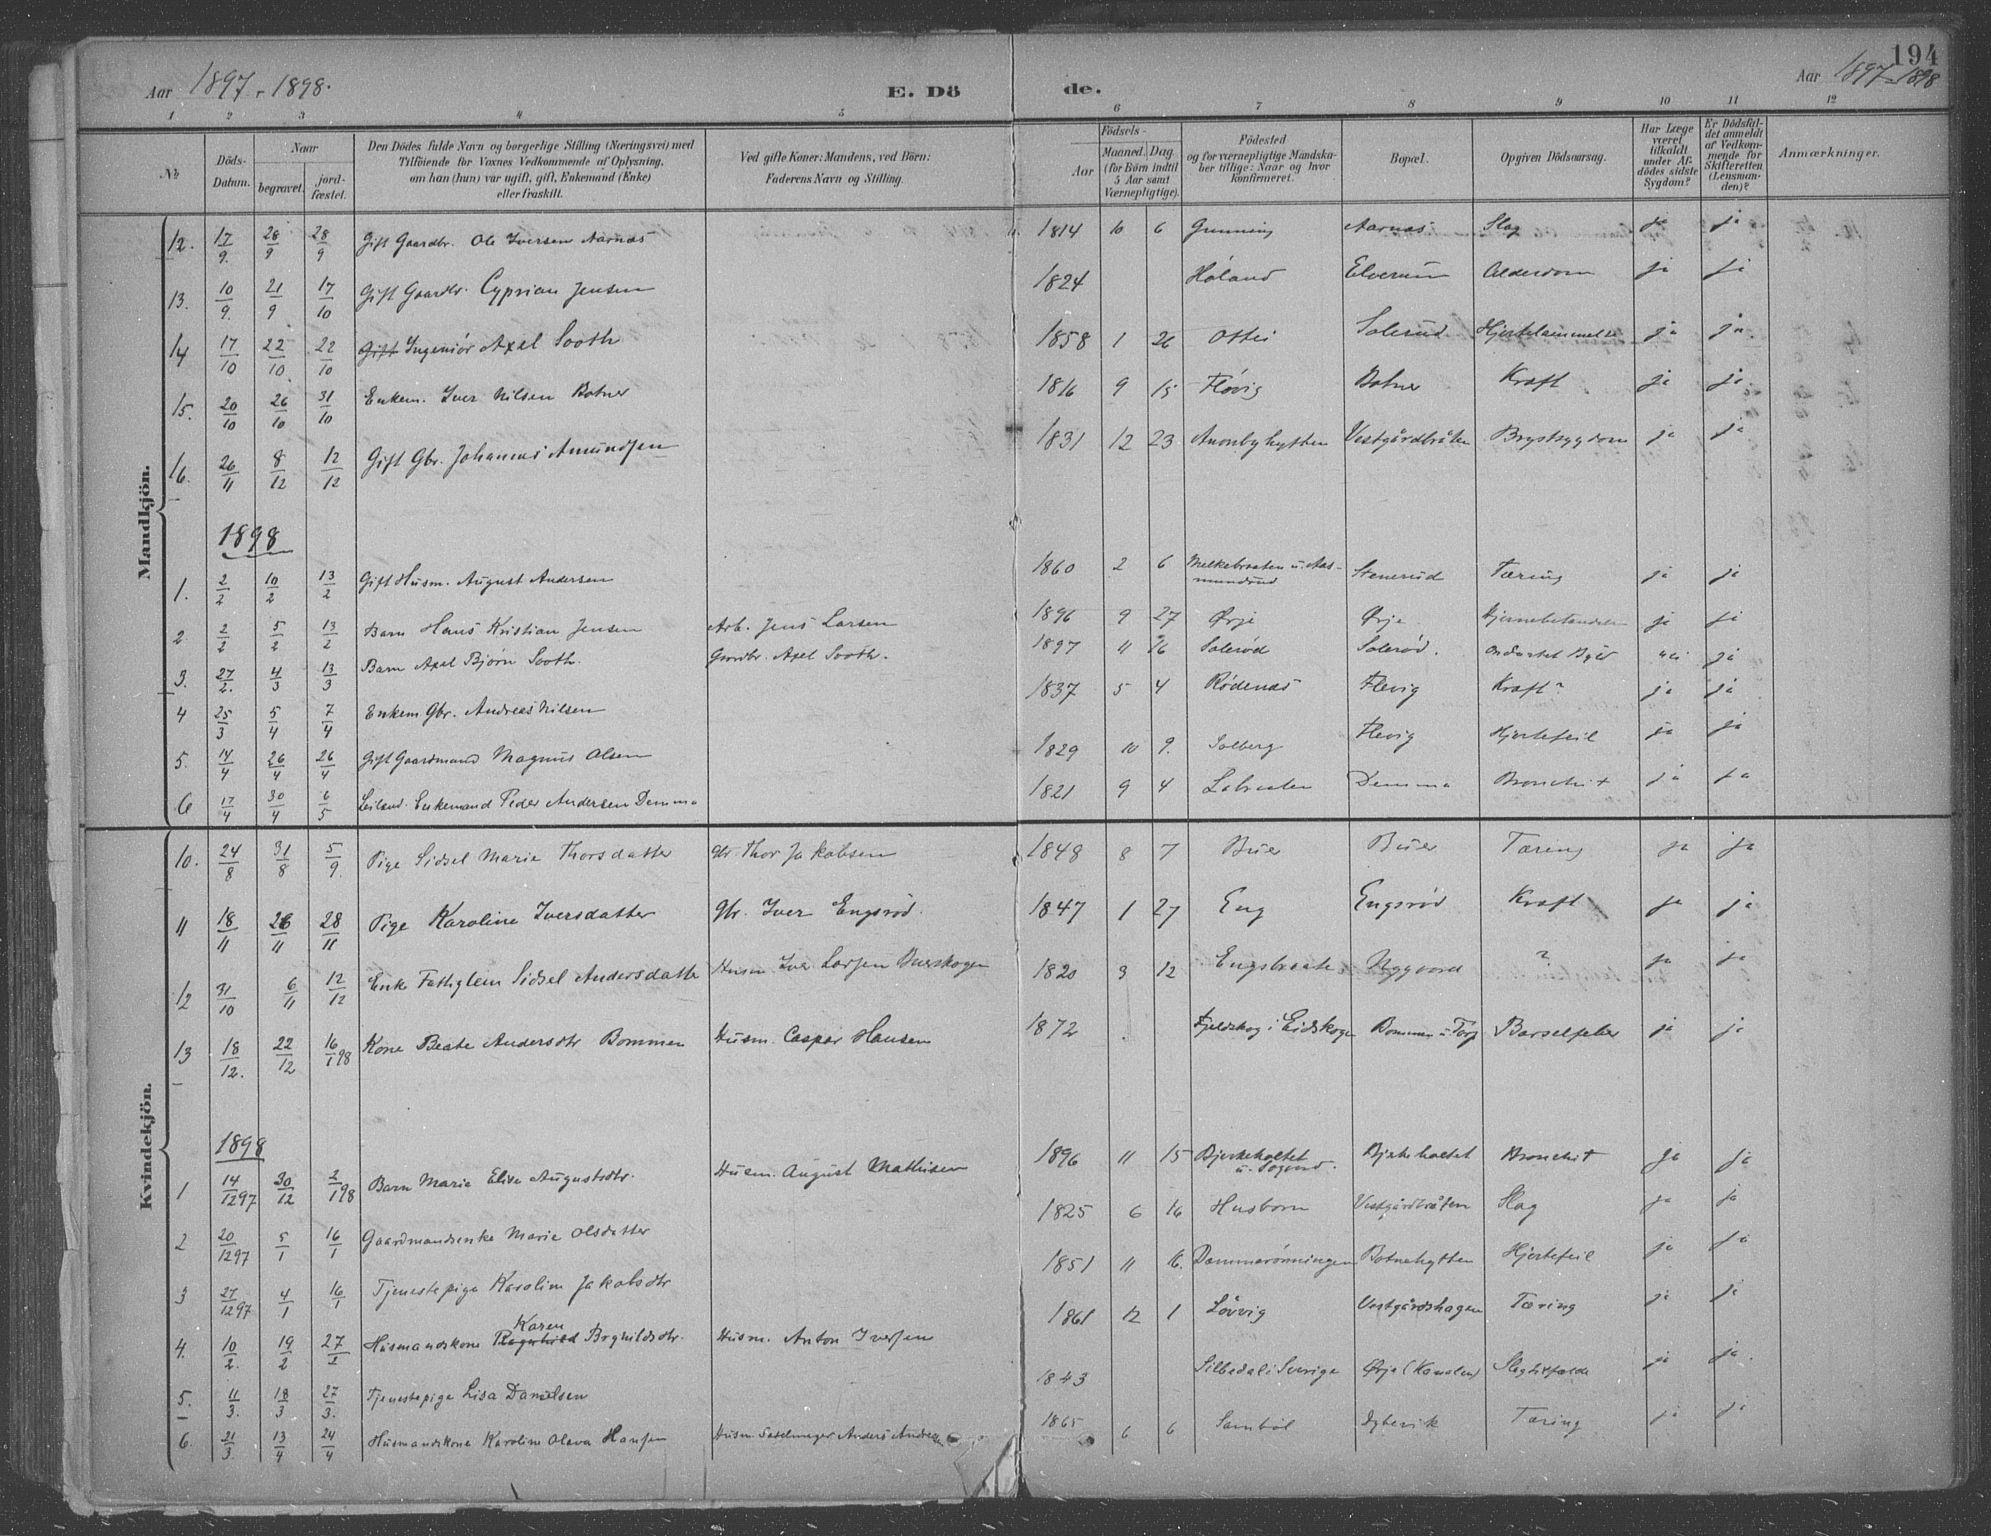 194
Aar 1897 - 1898. E. Dö de. Aar 1897-1898
1 2 3 4 5 6 7 8 9 10 11 12
№ Döds-Datum. Naar begravet. jordfæstet. Den Dödes fulde Navn og borgerlige Stilling (Næringsvei) med Tilföiende för Voxnes Vedkommende af Oplysning, om han (hun) var ugift, gift, Enkemand (Enke) eller fraskilt. Ved gifte Koner: Mandens, ved Börn: Faderens Navn og Stilling. Födsels- Aar Maaned. Dag. (for Börn indtil 5 Aar samt Værnepligtige). Födested og for værnepligtige Mandskaber tillige: Naar og hvor konfirmeret. Bopæl. Opgiven Dödsaarsag. Har Læge været tilkaldt under Afdödes sidste Sygdom? Er Dödsfaldet anmeldt af Vedkommende for Skifteretten (Lensmanden)? Anmærkninger.
Mandkjön.
12. 17/9. 28/9 28/9 Gift Gaardbr. Ole Iversen Aarnæs 1814 10 6 Grønning Aarnæs Slag ja ja
13. 10/9. 21/9 17/10 Gift Gaardbr. Cyprian Jensen 1824 Høland Elverum Alderdom ja ja
14 17/10 22/10 22/10 Gift Ingeniør Axel Sooth 1858 1 26 Ottei Solerud Hjertelammelse ja ja
15. 20/10 26/10 31/10 Enkem. Iver Nilsen Botner 1816 9 15 Fløvig Botner Kræft ja ja
16. 26/11 8/12 12/12 Gift Gbr. Johannes Amundsen 1831 12 23 Anonbyhytten Vestgårdbråten Brystsygdom ja ja
1898
1. 2/2 10/2 13/2 Gift Husm. August Andersen 1860 2 6 Melkebraaten u. Aasmundrud Stenerud Tæring ja ja
2 2/2 5/2 13/2 Barn Hans Kristian Jensen Arb. Jens Larsen 1896 9 27 Ørje Ørje Hjernebetændelse ja ja
3. 27/2. 4/3 13/3 Barn Axel Bjørn Sooth. Gaardbr. Axel Sooth. 1897 11 26 Solerød Solerød. nei ja
4 25/3 5/4 7/4 Enkem Gbr. Andreas Nilsen 1837 5 4 Rødenæs Flevig Kræft? ja ja
5. 14/4 26/4 26/4 Gift Gaardmand Magnus Olsen 1829 10 9. Solberg Flevig Hjertefeil ja ja
6 17/4 30/4 6/5 Leilænd. Enkemand Peder Andersen Demma 1821 9 4 Labraaten Demma Bronchit ja ja
Kvindekjön.
10. 24/8 31/8 5/9. Pige Sidsel Marie Thorsdatter Gbr. Thor Jakobsen 1848 8 7 Buer Buer Tæring ja ja
11 18/11 26/11 28/11 Pige Karoline Iversdatter Gbr. Iver Engsrød. 1847 1 27 Eng Engsrød Kræft ja ja
12 31/10 6/11 12/12 Enke Fattiglem Sidsel Andersdatter Husm. Iver Larsen Buerskogen 1820 3 12 Engsbraate ? ja ja
13 18/12. 22/12 16/1 98 Kone Beate Andersdtr Bommen Husm. Caspar Hansen 1872 Fjeldskog i Eidskogen Bommen u. Torp Barselfeber ja ja
1898
1 14/12 97 30/12 2/1 98 Barn Marie Elise Augustsdtr. Husm. August Mathisen 1896 11 15 Bjerkeholtet u. Sogvord. Bjerkeholtet Bronchit ja ja
2 20/12 97 5/1 16/1 Gaardmandsenke Marie Olsdatter 1825 6 16 Husborn Vestgårdbråten Slag ja ja
3 27/12 97 4/1 16/1 Tjenestepige Karoline Jakobsdtr 1851 11 16. Dammerønningen Botnehytten Hjertefeil ja ja
4. 10/2. 19/2 27/2 Husmandskone Ragnhild Karen Brynildsdtr. Husm. Anton Iversen 1861 12 1 Løvvig Vestgårdshagen Tæring ja ja
5. 11/3. 18/3 27/3. Tjenestepige Lisa Danielsen 1843 Silbedal i Sverige Ørje (Kanalen) Slagtilfælde ja ja.
6. 21/3 13/4 24/4 Husmandskone Karoline Olava Hansen Husm. Sadelmager Anders Andresen 1865 6 6 Sambøl Tæring ja ja